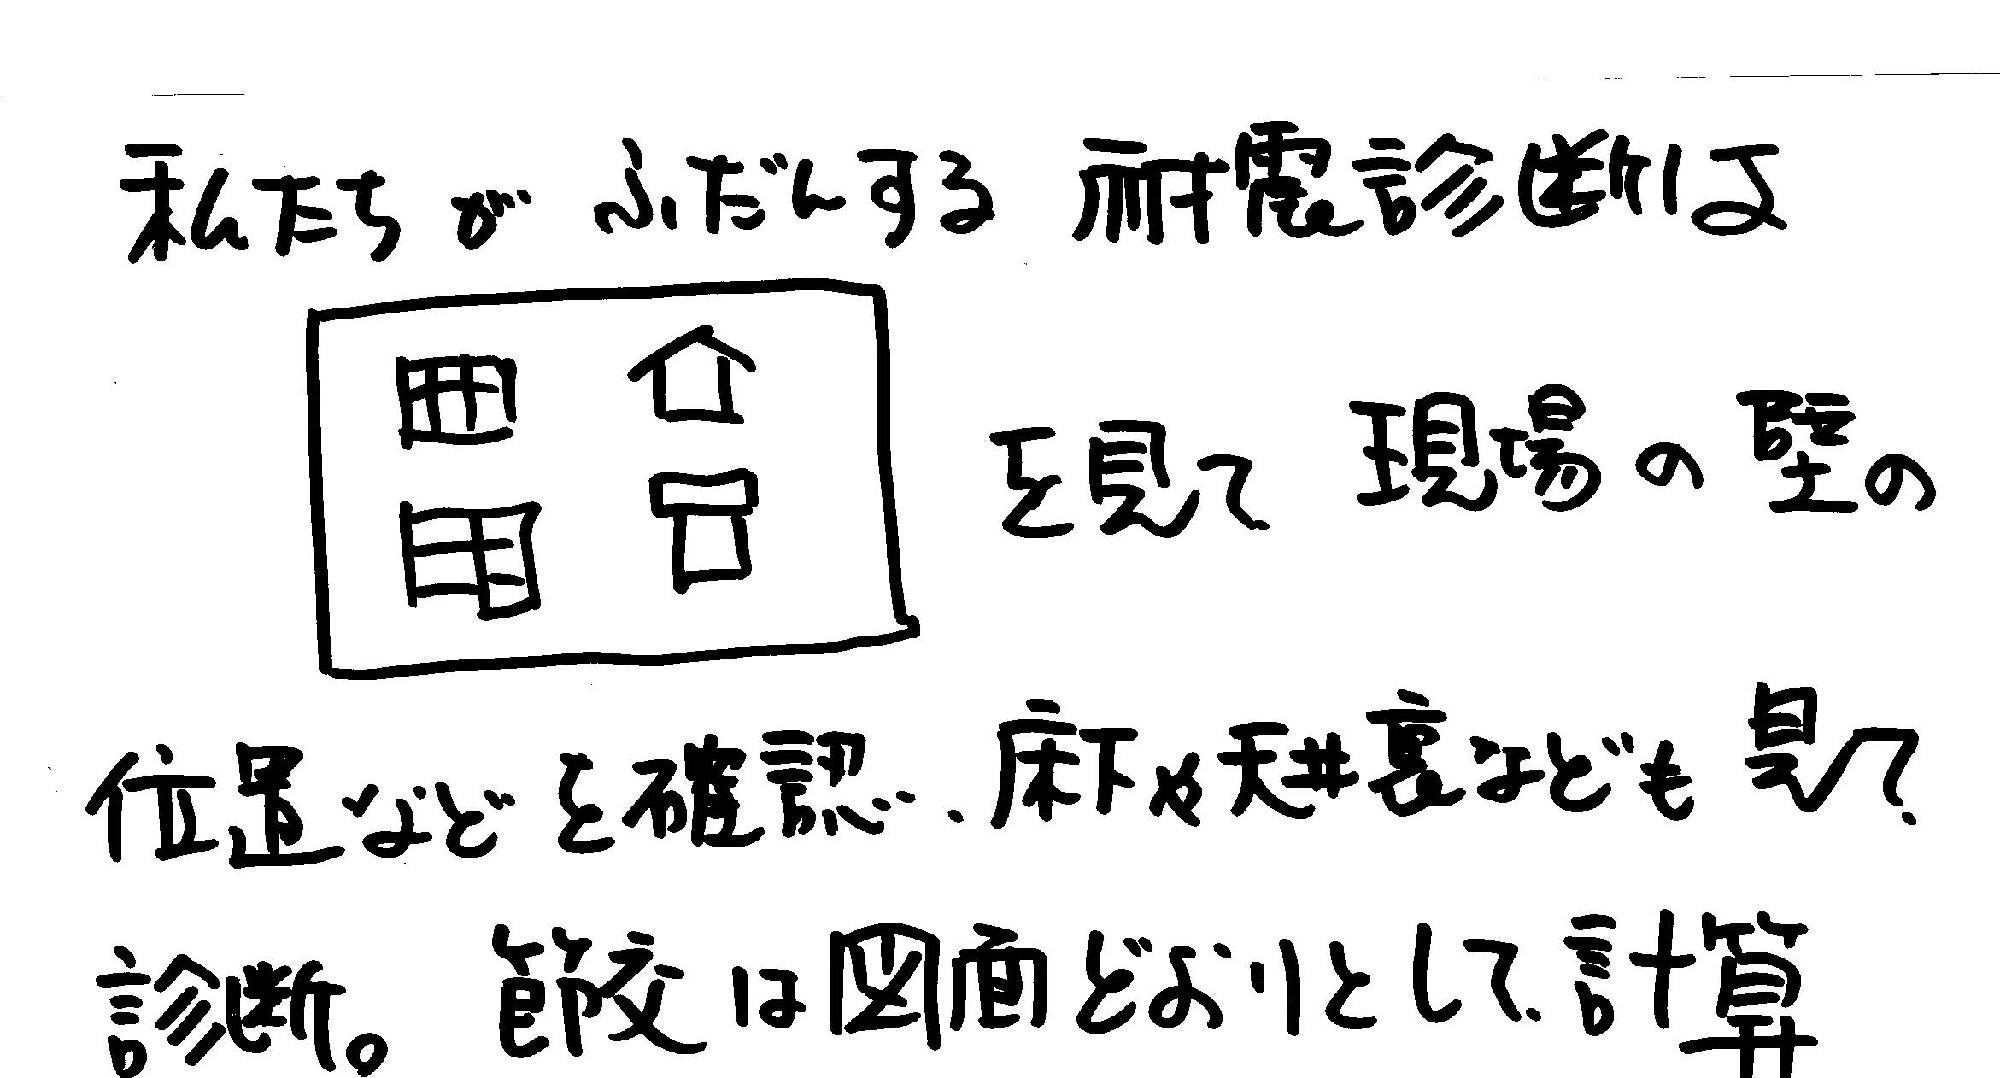 私たちが ふだんする 耐震診断は
を見て 現場の壁の
位置などを確認、床下や天井裏なども見て
診断。節交は図面どおりとして計算